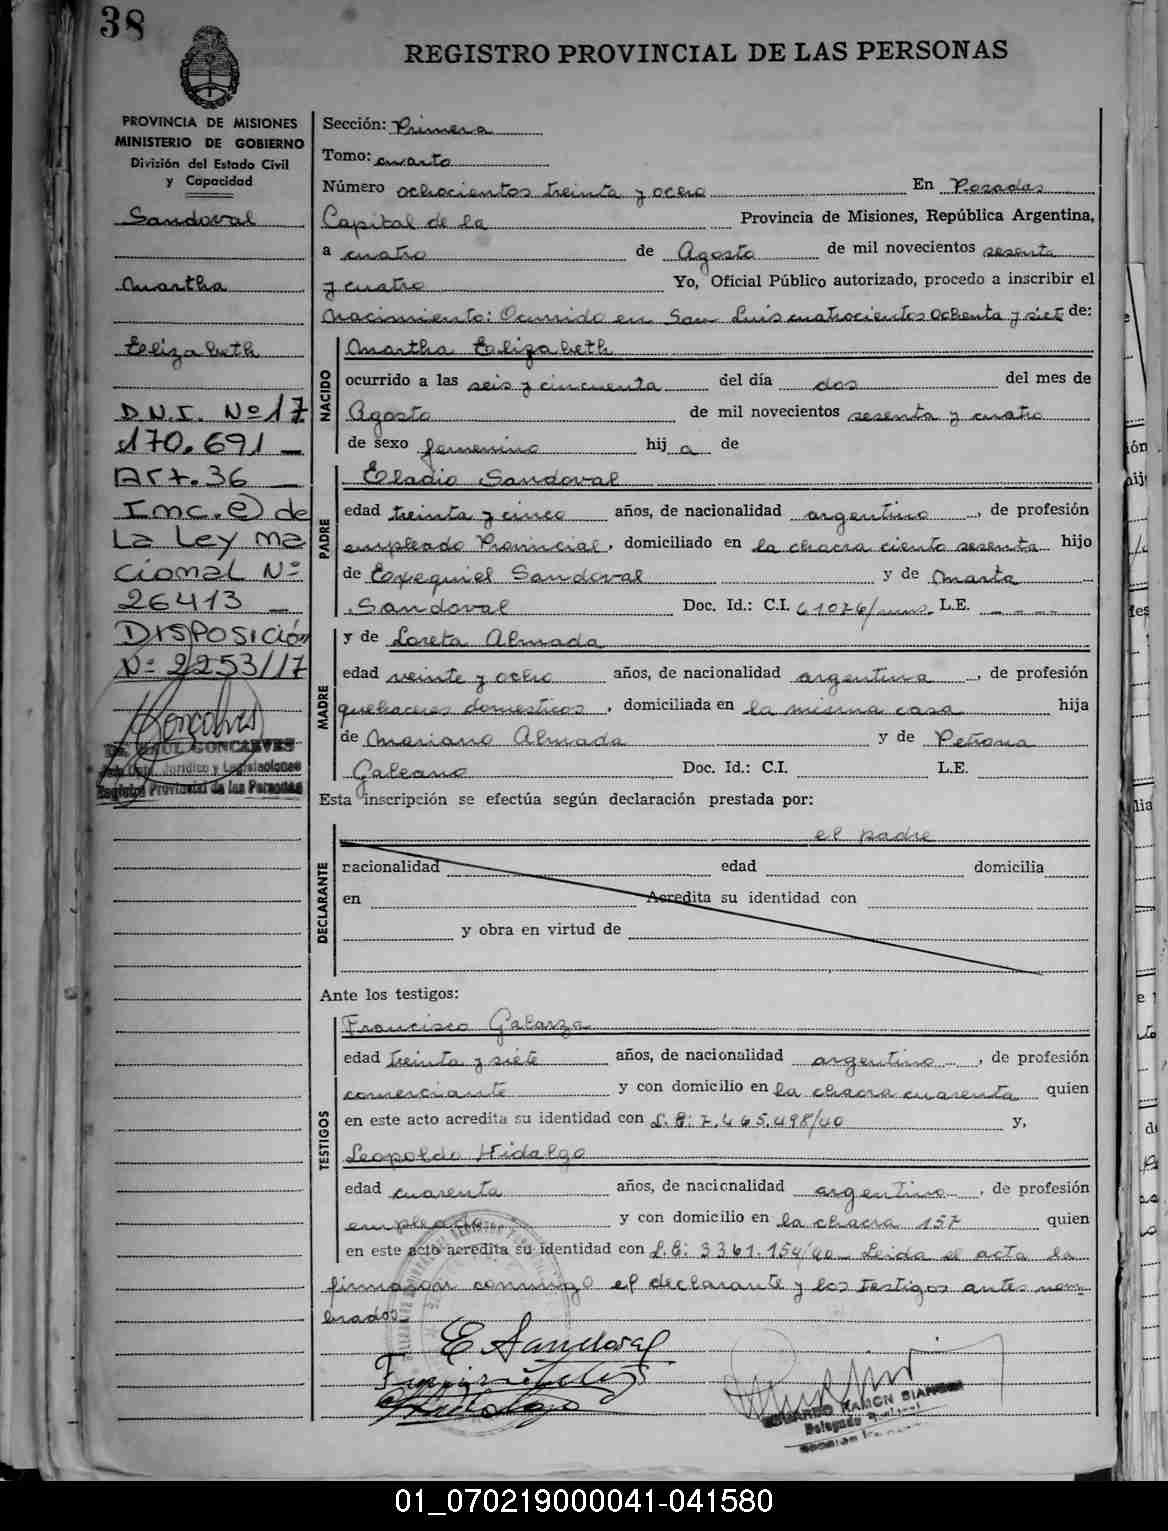 38
REGISTRO PROVINCIAL DE LAS PERSONAS
PROVINCIA DE MISIONES
MINISTERIO DE GOBIERNO
División del Estado Civil
y Capacidad
Sandoval
Martha
Elizabeth
D.N.I. Nº 17
170.691 _
Art. 36
Inc. e) de
La Ley na
cional Nº
26413 _
DISPOSICIÓN
Nº 2253/17
Dr. RAUL GONCALVES
Jefe Dpto. Jurídico y Legislaciones
Registro Provincial de las Personas
Sección: Primera
Tomo: cuarto
Número ochocientos treinta y ocho En Posadas
Capital de la Provincia de Misiones, República Argentina,
a cuatro de Agosto de mil novecientos sesenta
y cuatro Yo, Oficial Público autorizado, procedo a inscribir el
nacimiento: Ocurrido en San Luis cuatrocientos ochenta y siete de:
NACIDO
Martha Elizabeth
ocurrido a las seis y cincuenta del día dos del mes de
Agosto de mil novecientos sesenta y cuatro
de sexo femenino hij a de
PADRE
Eladio Sandoval
edad treinta y cinco años, de nacionalidad argentino, de profesión
empleado Provincial, domiciliado en la chacra ciento sesenta hijo
de Exequiel Sandoval y de Marta
Sandoval Doc. Id.: C.I. 61076/ L.E. _ _ _ _
MADRE
y de Loreta Almada
edad veinte y ocho años, de nacionalidad argentina, de profesión
quehaceres domesticos, domiciliada en la misma casa hija
de Mariano Almada y de Petrona
Galeano Doc. Id.: C.I. L.E.
Esta inscripción se efectúa según declaración prestada por:
DECLARANTE
el padre
nacionalidad edad domicilia
en Acredita su identidad con
y obra en virtud de
Ante los testigos:
TESTIGOS
Francisco Galarza
edad treinta y siete años, de nacionalidad argentino, de profesión
comerciante y con domicilio en la chacra cuarenta quien
en este acto acredita su identidad con L.E: 7.465.498/40 y,
Leopoldo Hidalgo
edad cuarenta años, de nacionalidad argentino, de profesión
empleado y con domicilio en la chacra 157 quien
en este acto acredita su identidad con L.E: 3361.154/40 Leida el acta la
firmaron conmigo el declarante y los testigos antes nom-
brados.
E Sandoval
Hidalgo
EDUARDO RAMON BIANCHI
Delegado
01_070219000041-041580